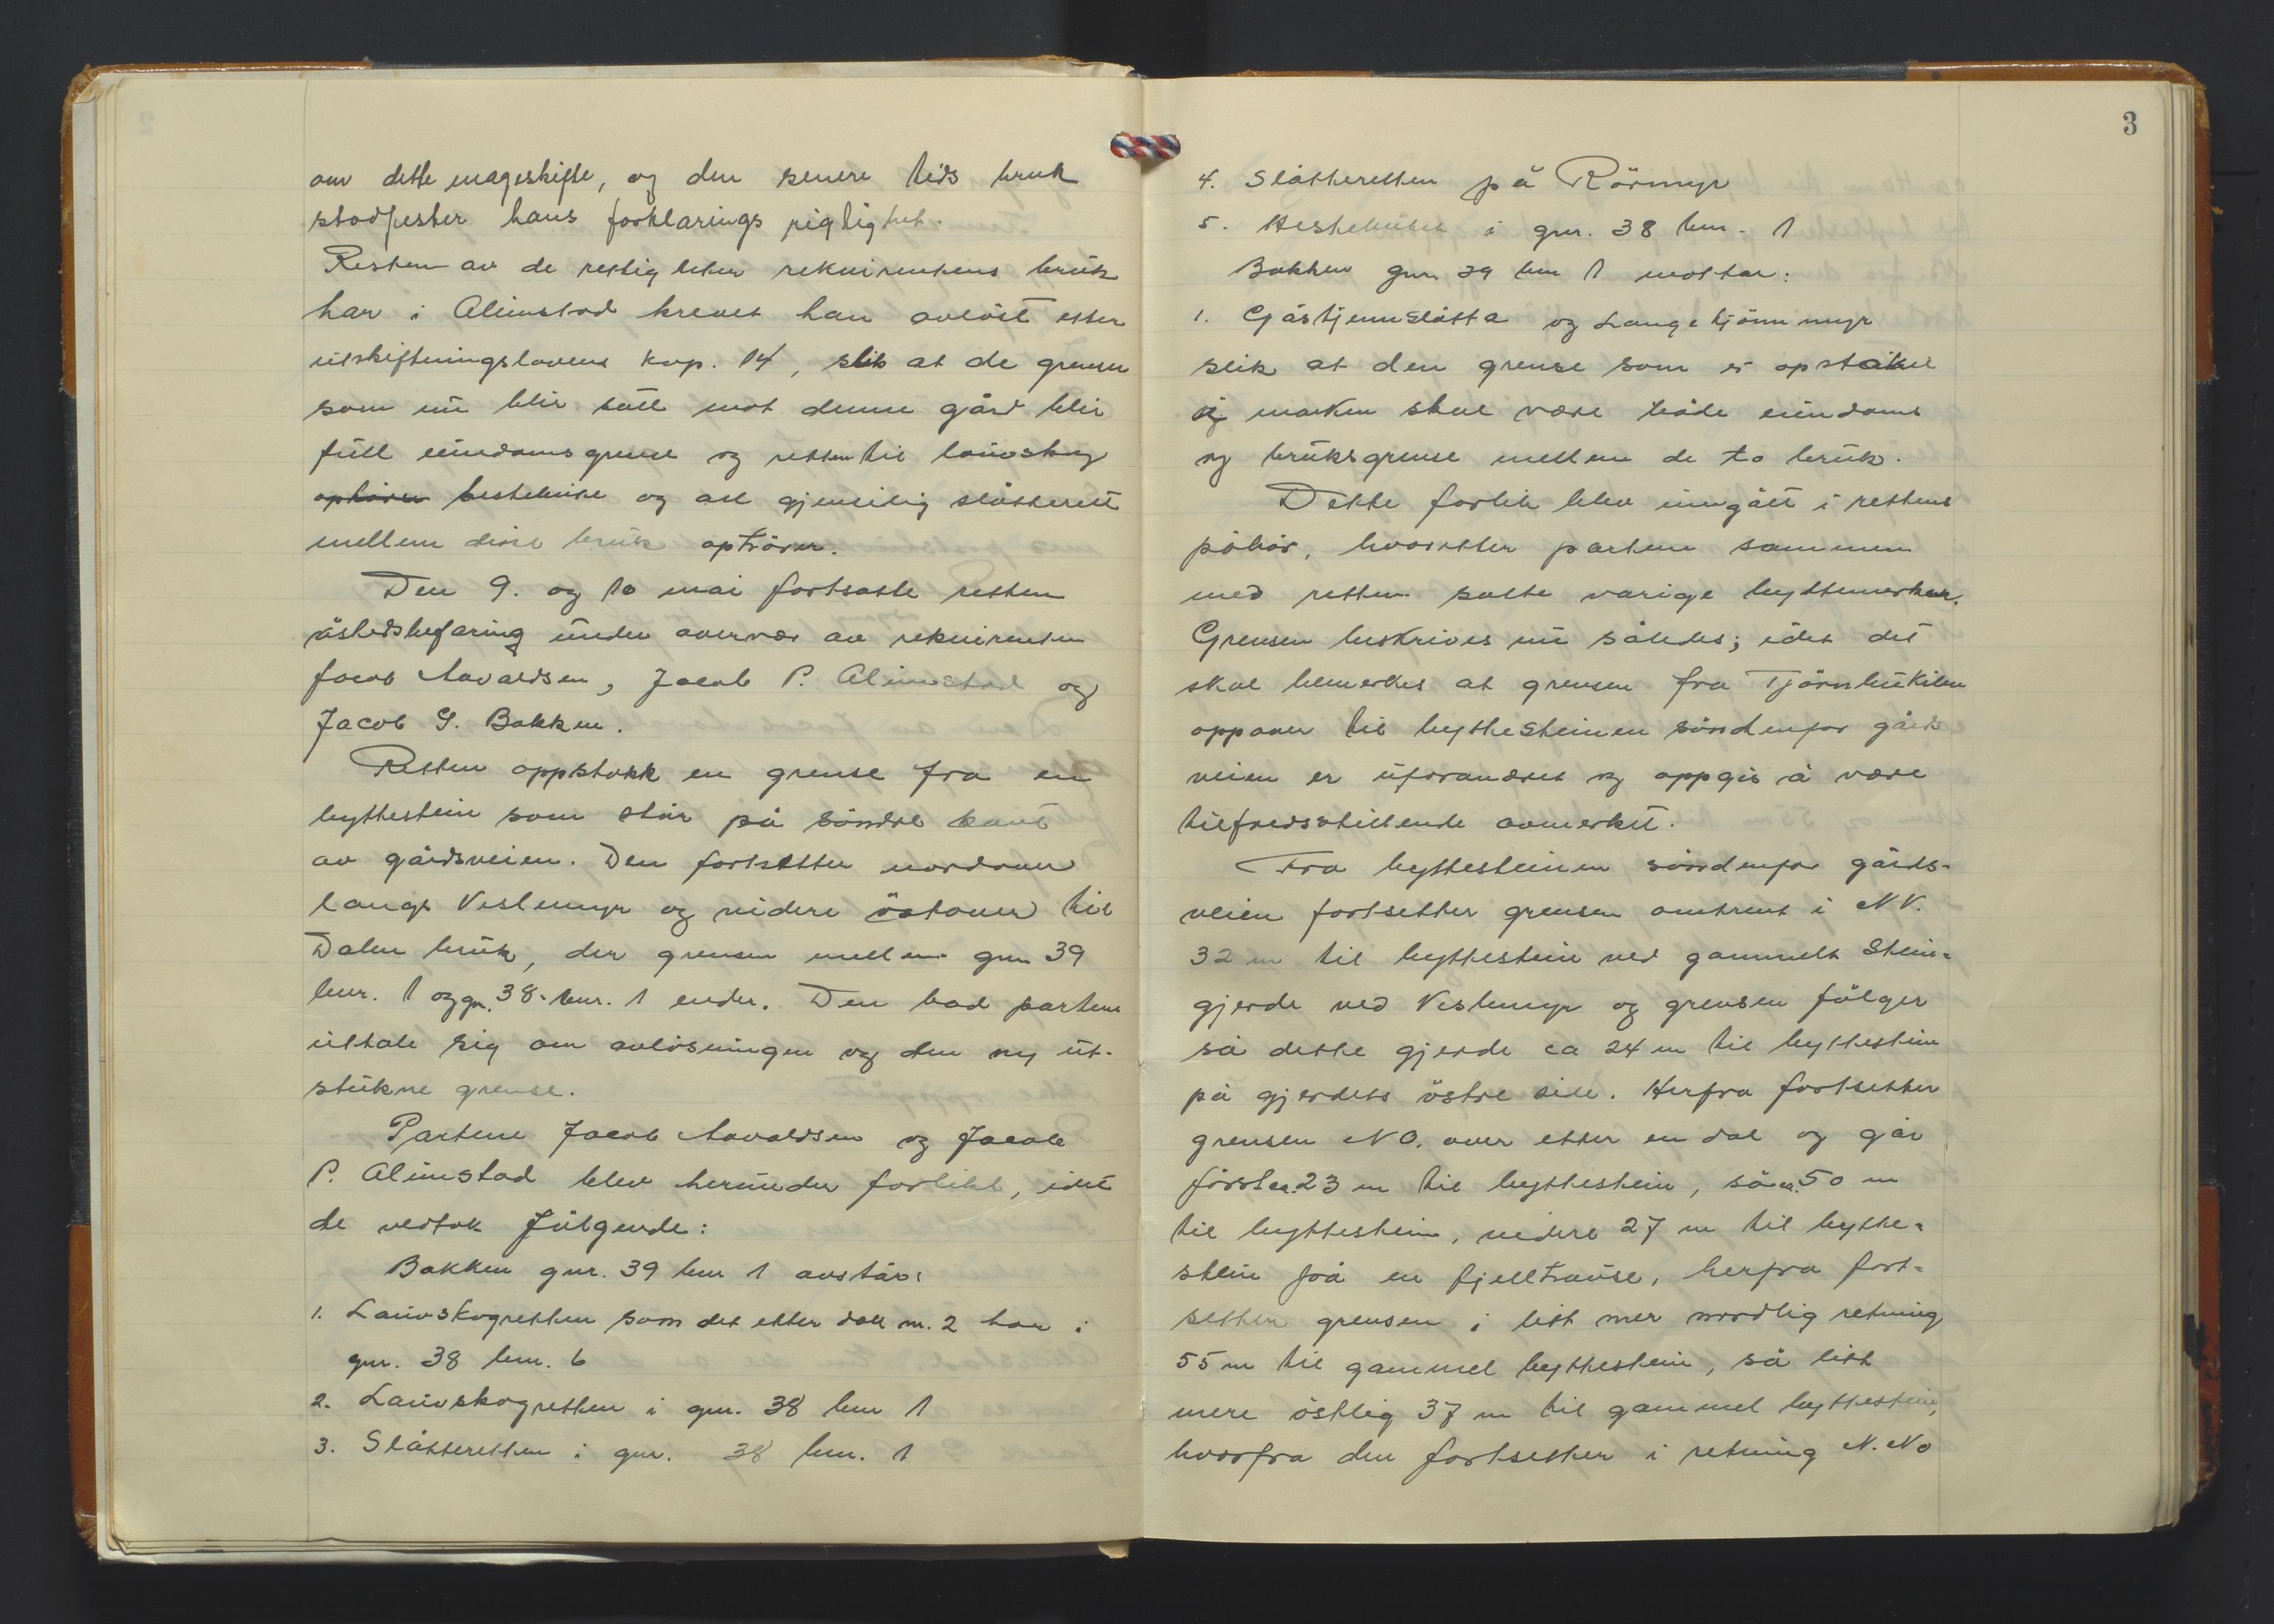 om dette mageskifte, og den senere tids bruk
stadfester hans forklarings rigtighet.
Resten av de rettigheter rekvirentens bruk
har i Alimstad krevet han avløst etter
utskiftningslovens kap. 14, slik at de grenser
som nu blir satt mot denne gård blir
full eiendomsgrense og retten til lauvskog
ophører hestebeite og all gjensidig slåtterett
mellem disse bruk ophører.
Den 9. og 10 mai fortsatte retten
åstedsbefaring under overvær av rekvirenten
Jacob Aavaldsen, Jacob P. Alimstad og
Jacob G. Bakken.
Retten oppstakk en grense fra en
byttestein som står på søndre kant
av gårdsveien. Den fortsetter nordover
langs Veslemyr og videre östover til
Dalen bruk, der grensen mellem gnr 39
bnr. 1 og gnr. 38 bnr. 1 ender. Den bad partene
uttale sig om avløsningen og den ny ut-
stukne grense.
Partene Jacob Aavaldsen og Jacob
P. Alimstad blev herunder forlikt, idet
de vedtok fölgende:
Bakken gnr. 39 bnr 1 avstår:
1. Lauvskogretten som det etter dok nr. 2 har i
gnr. 38 bnr. 6
2. Lauvskogretten i gnr. 38 bnr 1
3. Slåtteretten i gnr. 38 bnr. 1
3
4. Slåtteretten på Rörmyr
5. Hestebeitet i gnr. 38 bnr. 1
Bakken gnr 39 bnr 1 mottar:
1. Gåstjennslåtta og Langetjönnmyr
slik at den grense som er opstukket
i marken skal være både eiendoms
og bruksgrense mellem de to bruk.
Dette forlik blev inngått i rettens
påhör, hvoretter partene sammen
med retten satte varige byttemerker.
Grensen beskrives nu således; idet det
skal bemerkes at grensen fra Tjörnbukilen
oppover til byttesteinen söndenfor gårds
veien er uforandret og oppgis å være
tilfredsstillende avmerket.
Fra byttesteinen söndenfor gårds-
veien fortsetter grensen omtrent i NV.
32 m til byttestein ved gammelt stein-
gjerde ved Veslemyr og grensen fölger
så dette gjerde ca 24 m til byttestein
på gjerdets östre side. Herfra fortsetter
grensen NO. over etter en dal og går
först ca. 23 m til byttestein, så ca. 50 m
til byttestein, videre 27 m til bytte-
stein på en fjellknause, herfra fort-
setter grensen i litt mer nordlig retning
55 m til gammel byttestein, så litt
mere östlig 37 m til gammel byttestein,
hvorfra den fortsetter i retning N. NO